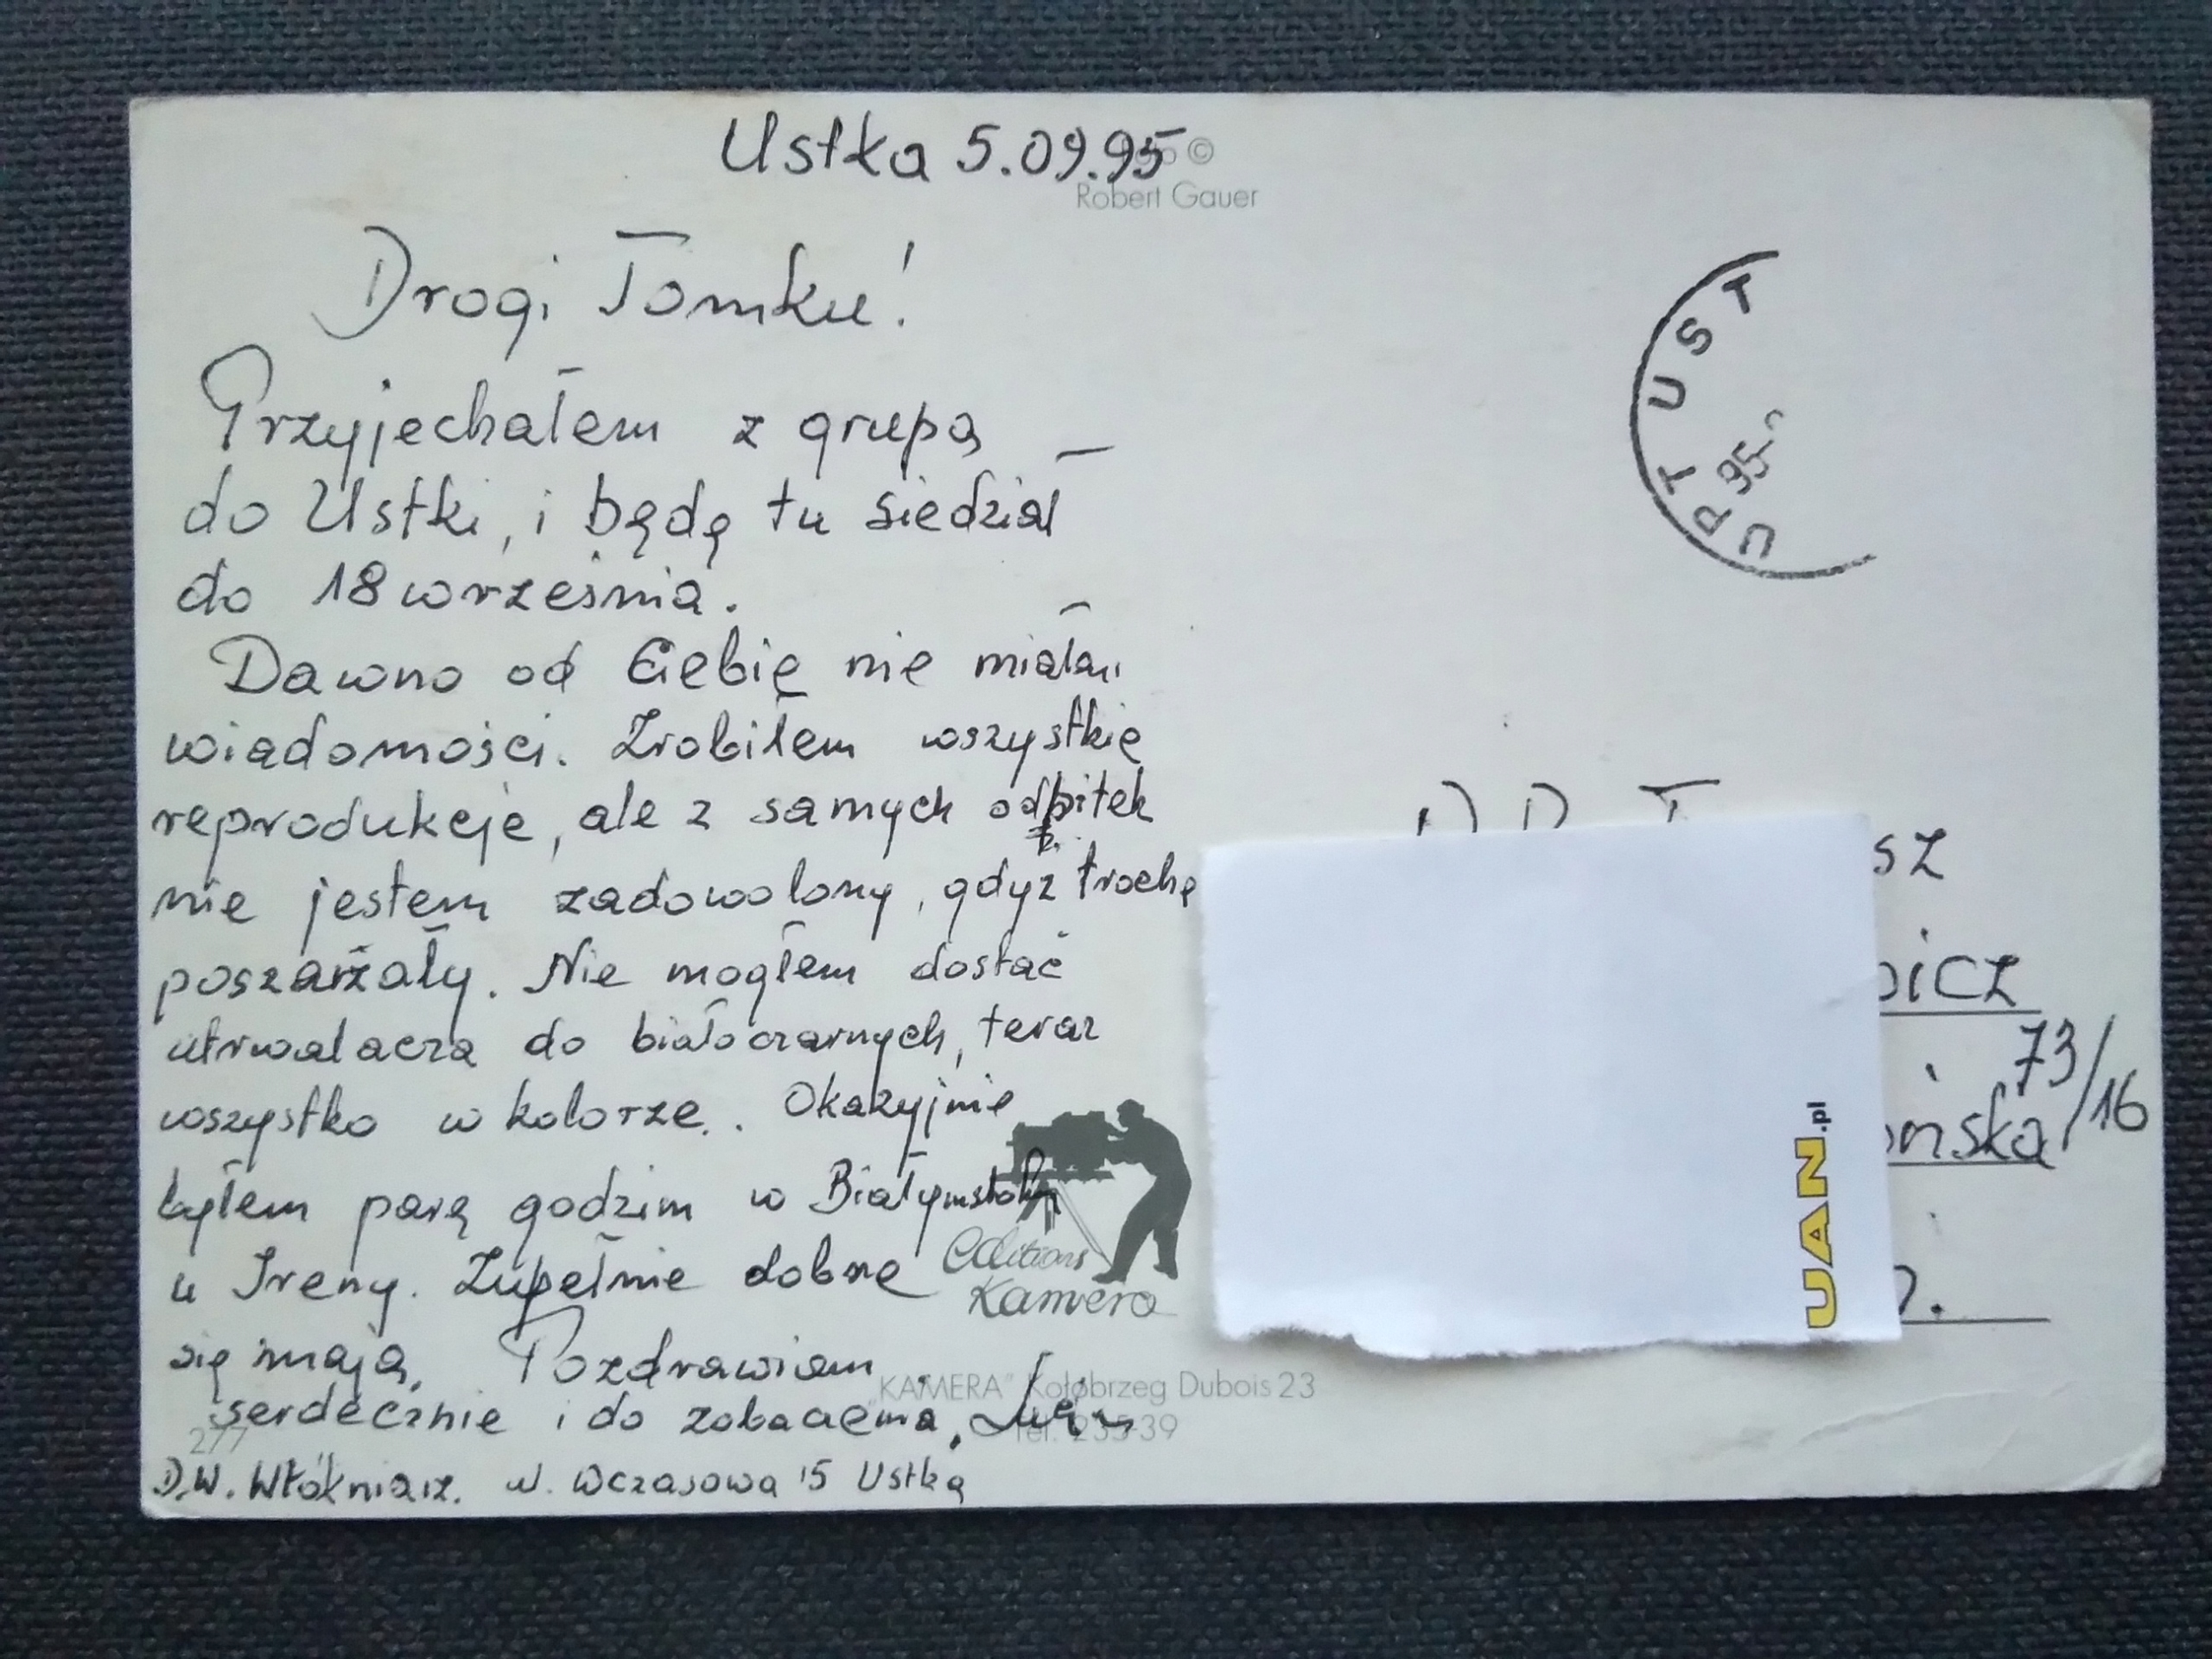 Ustka 5.09.95
©
Robert Gauer
Drogi Tomku!
Przyjechałem z grupą
do Ustki, i będę tu siedział
do 18 września.
Dawno od Ciebie nie miałem
wiadomości. Zrobiłem wszystkie
reprodukcje, ale z samych odbitek
nie jestem zadowolony, gdyż trochę
poszarzały. Nie mogłem dostać
utrwalacza do białoczarnych, teraz
wszystko w kolorze. Okazyjnie
byłem parę godzin w Białymstoku
u Ireny. Zupełnie dobrze
się mają. Pozdrawiam
serdecznie i do zobaczenia,
D.W. Włókniarz. ul. Wczasowa 15 Ustka
editions
Kamera
"KAMERA" Kołobrzeg Dubois 23
Tel. 235-39
277
UPT UST
95-
sz
icz
73/16
ońska
UAN.pl